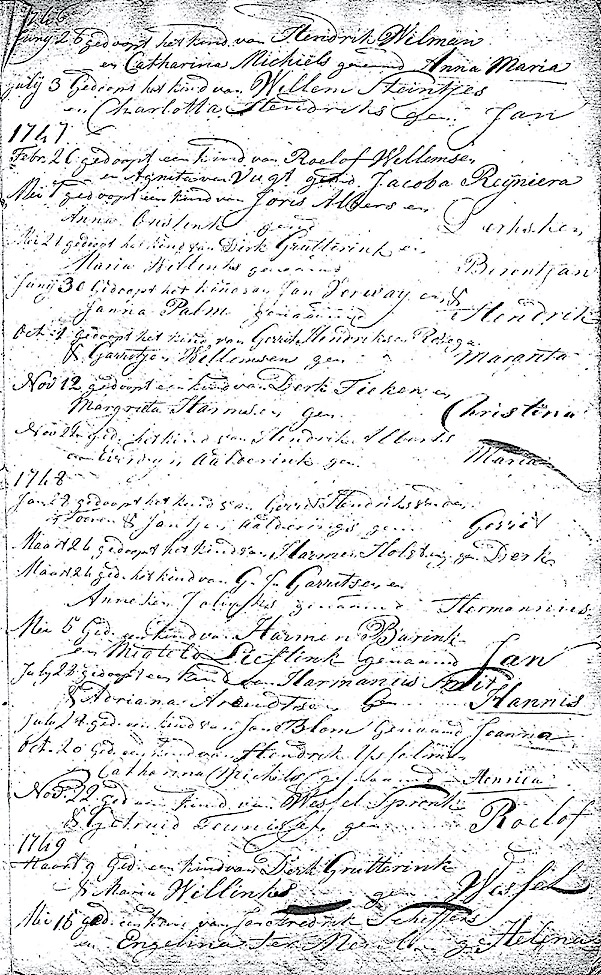 1746
Juny 26 gedoopt het kind van Hendrik Wilman
en Catharina Michiels genaamd Anna Maria
July 3 Gedoopt het kind van Willem Steintjes
en Charlotta Hendriks gen: Jan
1747
Febr. 26 gedoopt een kind van Roelof Willemsen
en Agneta van Vugt gend Jacoba Reijniera
Mei 1 gedoopt een kind van Joris Albers en
Anna gend Derksken
Mei 21 gedoopt het kind van Dirk Grutterink en
Maria Willinks genaamd Berentjan
Juny 30 Gedoopt het kind van Jan Verway en
Janna Palm genaamd Hendrik
Oct. 1 gedoopt het kind van Gerrit Hendriksen
& Garritjen Willemsen gen Maranta
Nov 12 gedoopt een kind van Derk Ticken en
Margrita Harmsen gen Christina
Nov ged. het kind van Hendrik Alberts
en Aalderink gen Maria
1748
Jan 28 gedoopt het kind van Gerrit Hendriksen
& Jantjen Aalderings gen Gerrit
Maart 26 gedoopt het kind van Harmen gen Derk
Maart 26 ged. het kind van G. J. Garritsen en
Anneken genaamd Hermannus
Mei 5 Ged. een kind van Harmen Barink
en Lieflink Genaamd Jan
July 28 gedoopt een kind van Harmanus Smit
& Adriana Arendtsen Gen Hannes
July 28 ged. een kind van Jan Blom Genaamd Joanna
Oct. 20 Ged. een kind van Hendrik Ysselman
Catharina Michels genaamd Henrica
Nov 22 ged een kind van Wessel Sprenk
& Getruid Teunissen gen Roelof
1749
Maart 9 Ged. een kind van Derk Grutterink
& Maria Willinks gen Wessel
Mei 15 ged. een kind van Jan Fredrik Scheffers
en Engelina Ter gen Helena